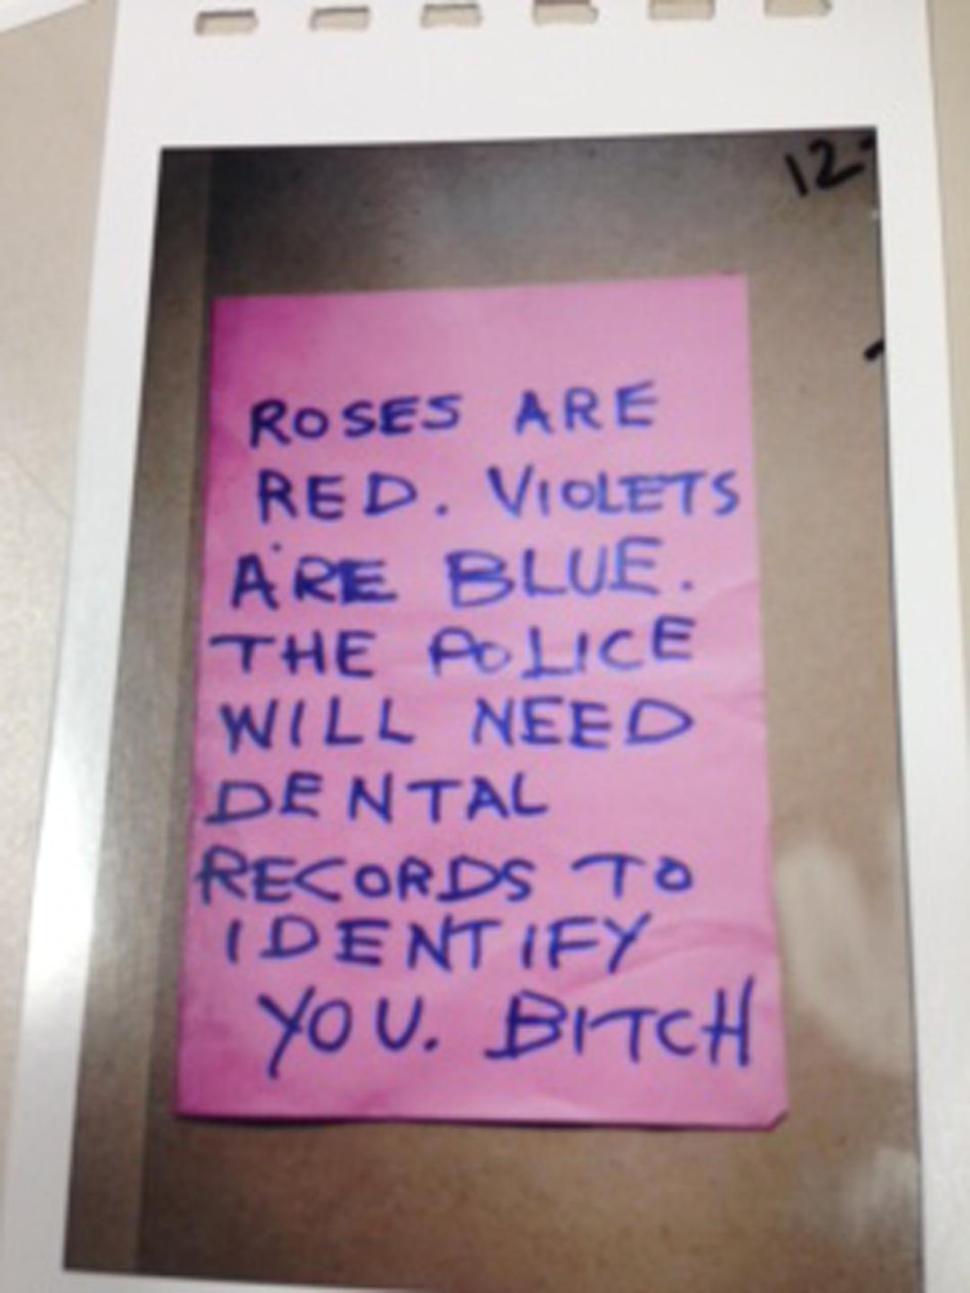 12-
ROSES ARE
RED. VIOLETS
ARE BLUE.
THE POLICE
WILL NEED
DENTAL
RECORDS TO
IDENTIFY
YOU. BITCH